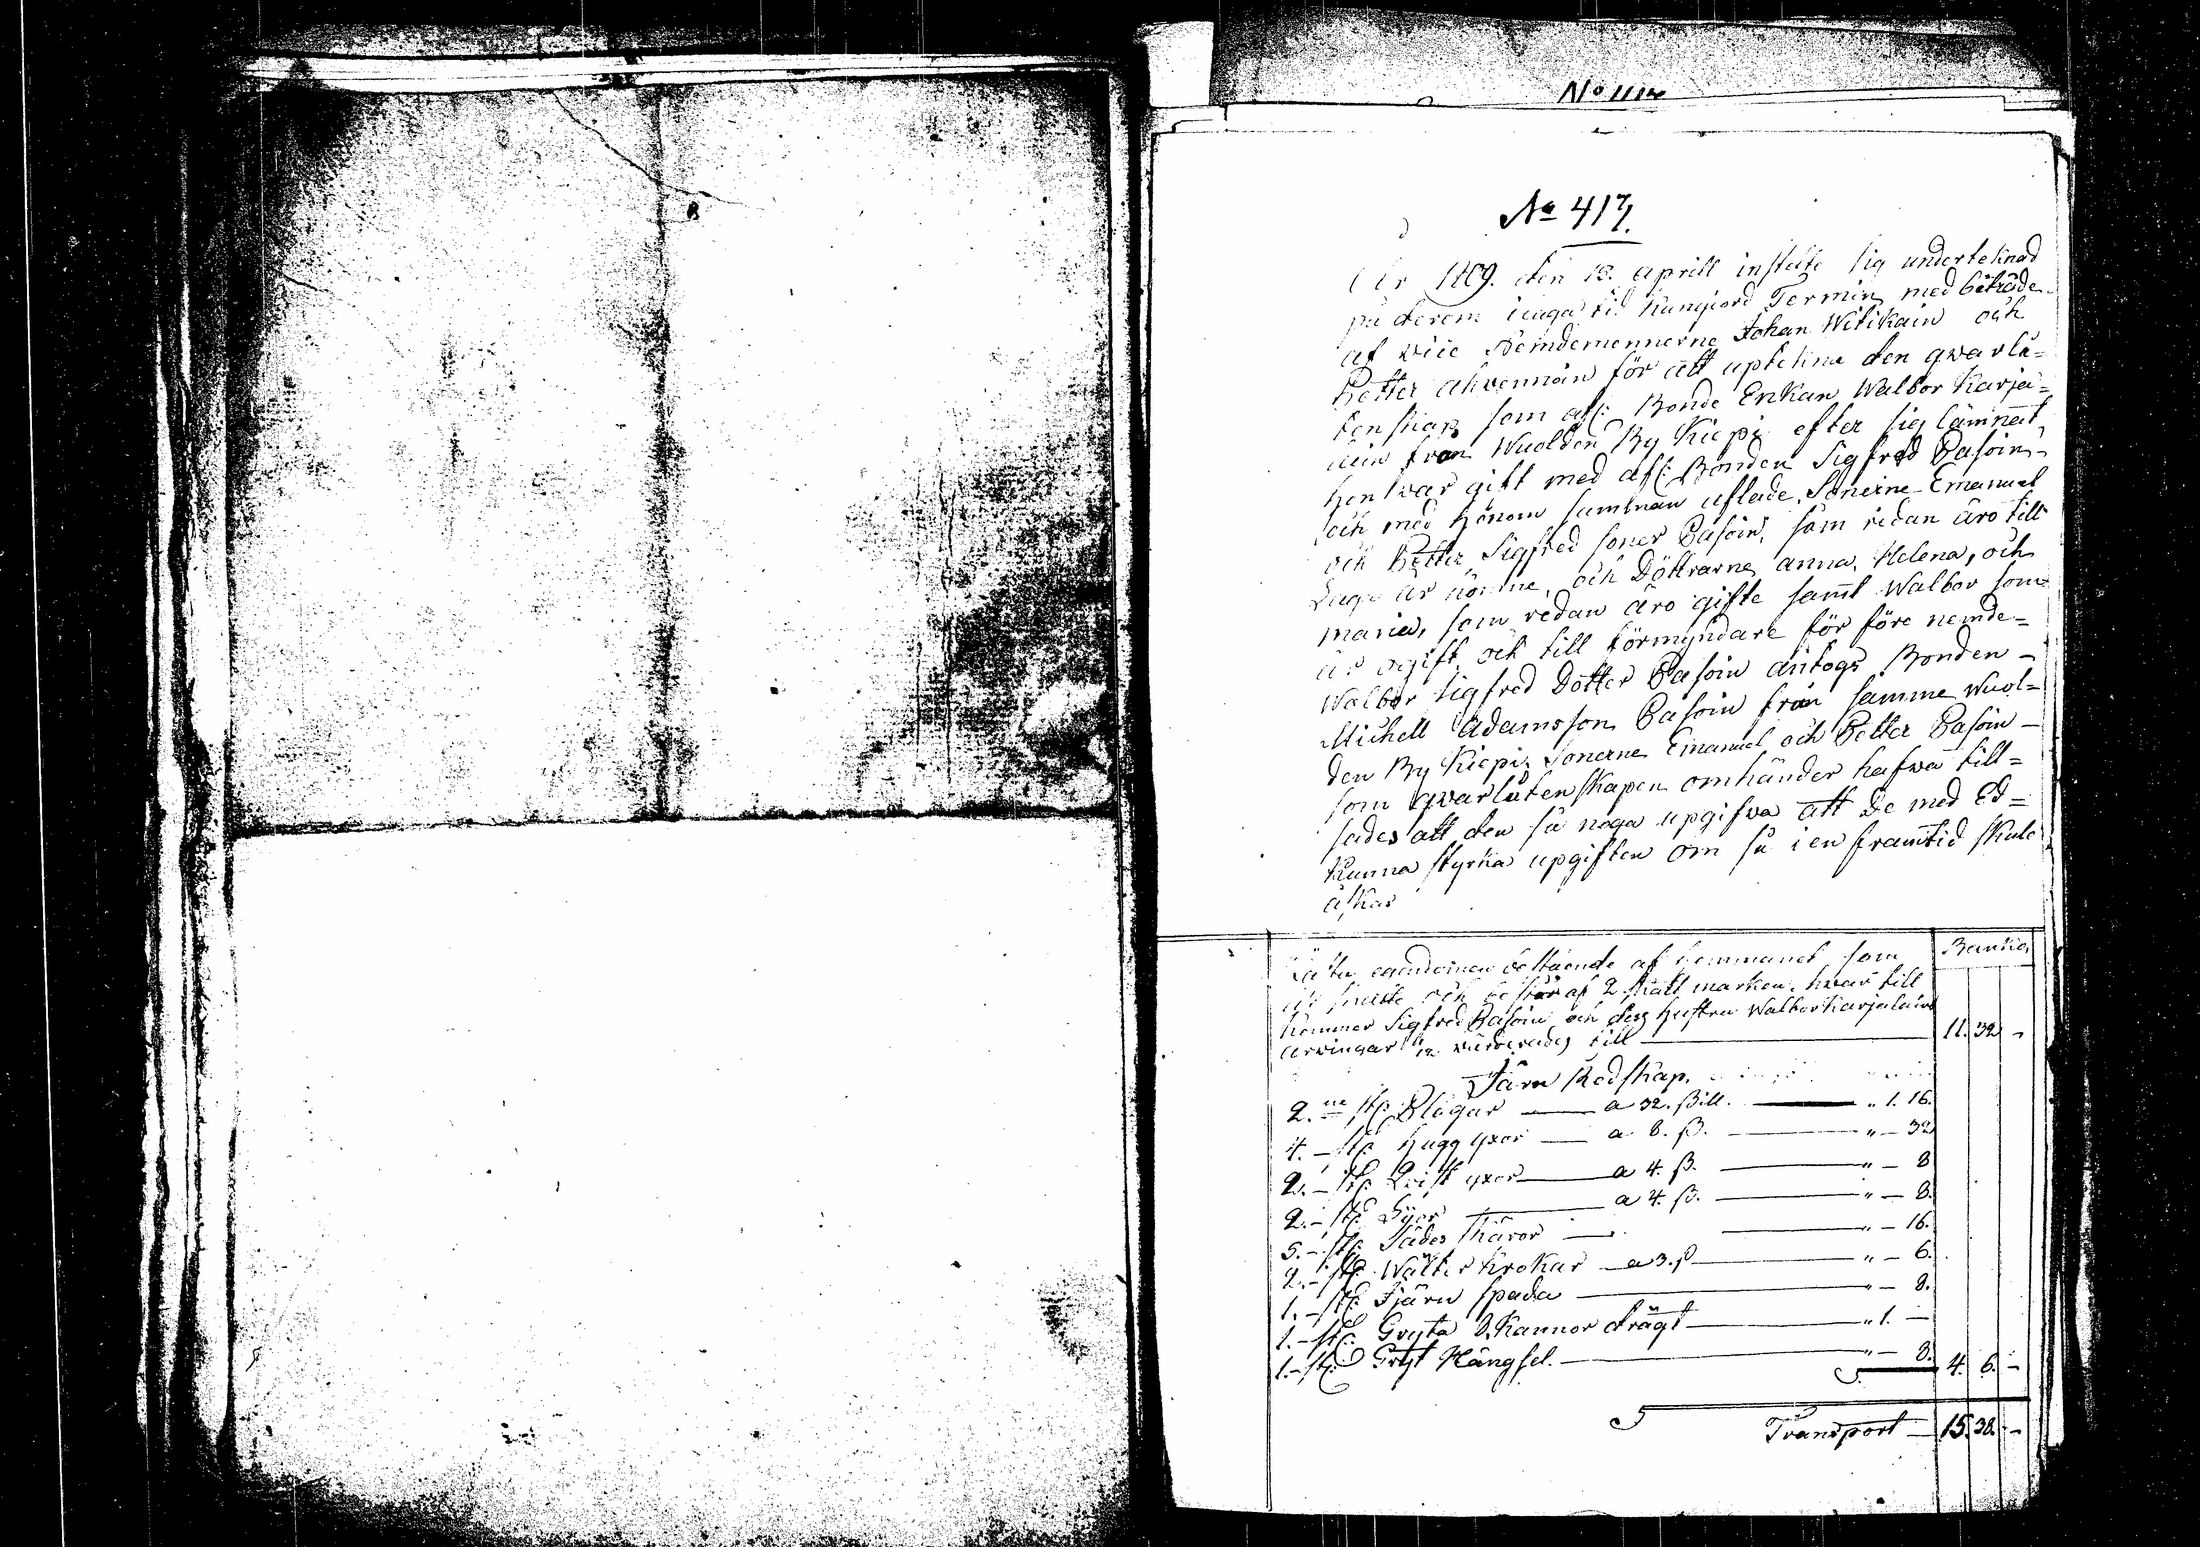 No 417.
År 1809. den 13. aprill instelte sig underteknad
på derom i laga tid kungjord Termin, med biträde
af vice Nemdemennerne Johan Witikain och
Petter Ahvennain för att upteckna den qwarlå=
tenskap som afl: Bonde Enkan Walbor Karja=
lain från Wuolden By Kiepi efter sig lämnat,
hon war gift med afl: Bonden Sigfred Pasoin,
och med honom samman aflade, Sönerne Emanuel
och Petter Sigfred söner Pasoin, som redan äro till
Laga år komne, och Döttrarne, anna, Helena, och
maria, som redan äro gifte samt Walbor som
är ogift, och till förmyndare för före nemde=
Walbor Sigfred Dotter Pasoin antogs Bonden -
Michell Adamsson Pasoin från samme wuol=
den By Kiepi, Sönerne Emanuel och Petter Pasoin -
som qwarlåtenskapen omhänder hafwa till=
sades att den så noga upgifwa att De med Ed=
Kunna styrka upgiften om så i en framtid skule
äskas
Banko
egendomen bestående af hemmanet som
är och består af 2. skatt marker, hwar till
Kommer Sigfred Pasoin och dess hustru Walbor Karjalains
arwingar värderades till — 11. 32 -
Järn Redskap.
2.ne st: Plogar — a 32. ßill. — " 1. 16.
4. - st: hugg yxor — a 8. ß. — " - 32
2. - st: Qvist yxor — a 4. ß. — " - 8
2. - st: Lijor — a 4. ß. — " - 8.
5. - st: Sädes skäror — " - 16.
2. - st: krokar — a 3. ß — " - 6.
1. - st: Jjärn spada — " - 8.
1. - st: Gryta 8. Kannor drägt — " 1. -
1. - st: Gryt Hängsel. — " - 8. 4. 6. -
Transport — 15. 38. -